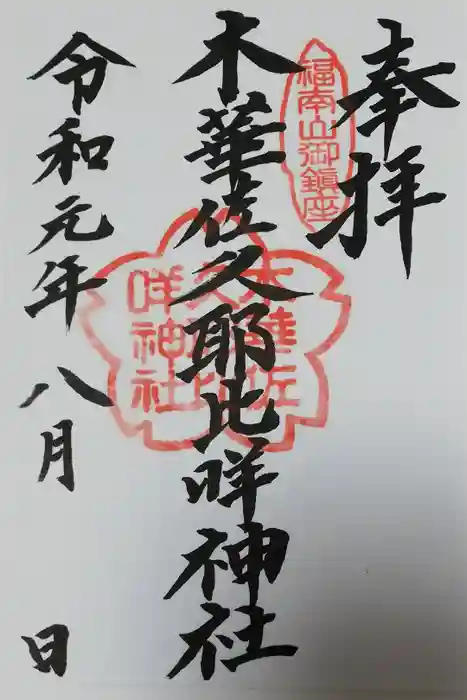 奉拝
福南山御鎮座
木華佐久耶比咩神社
木華佐
久耶比
咩神社
令和元年八月 日